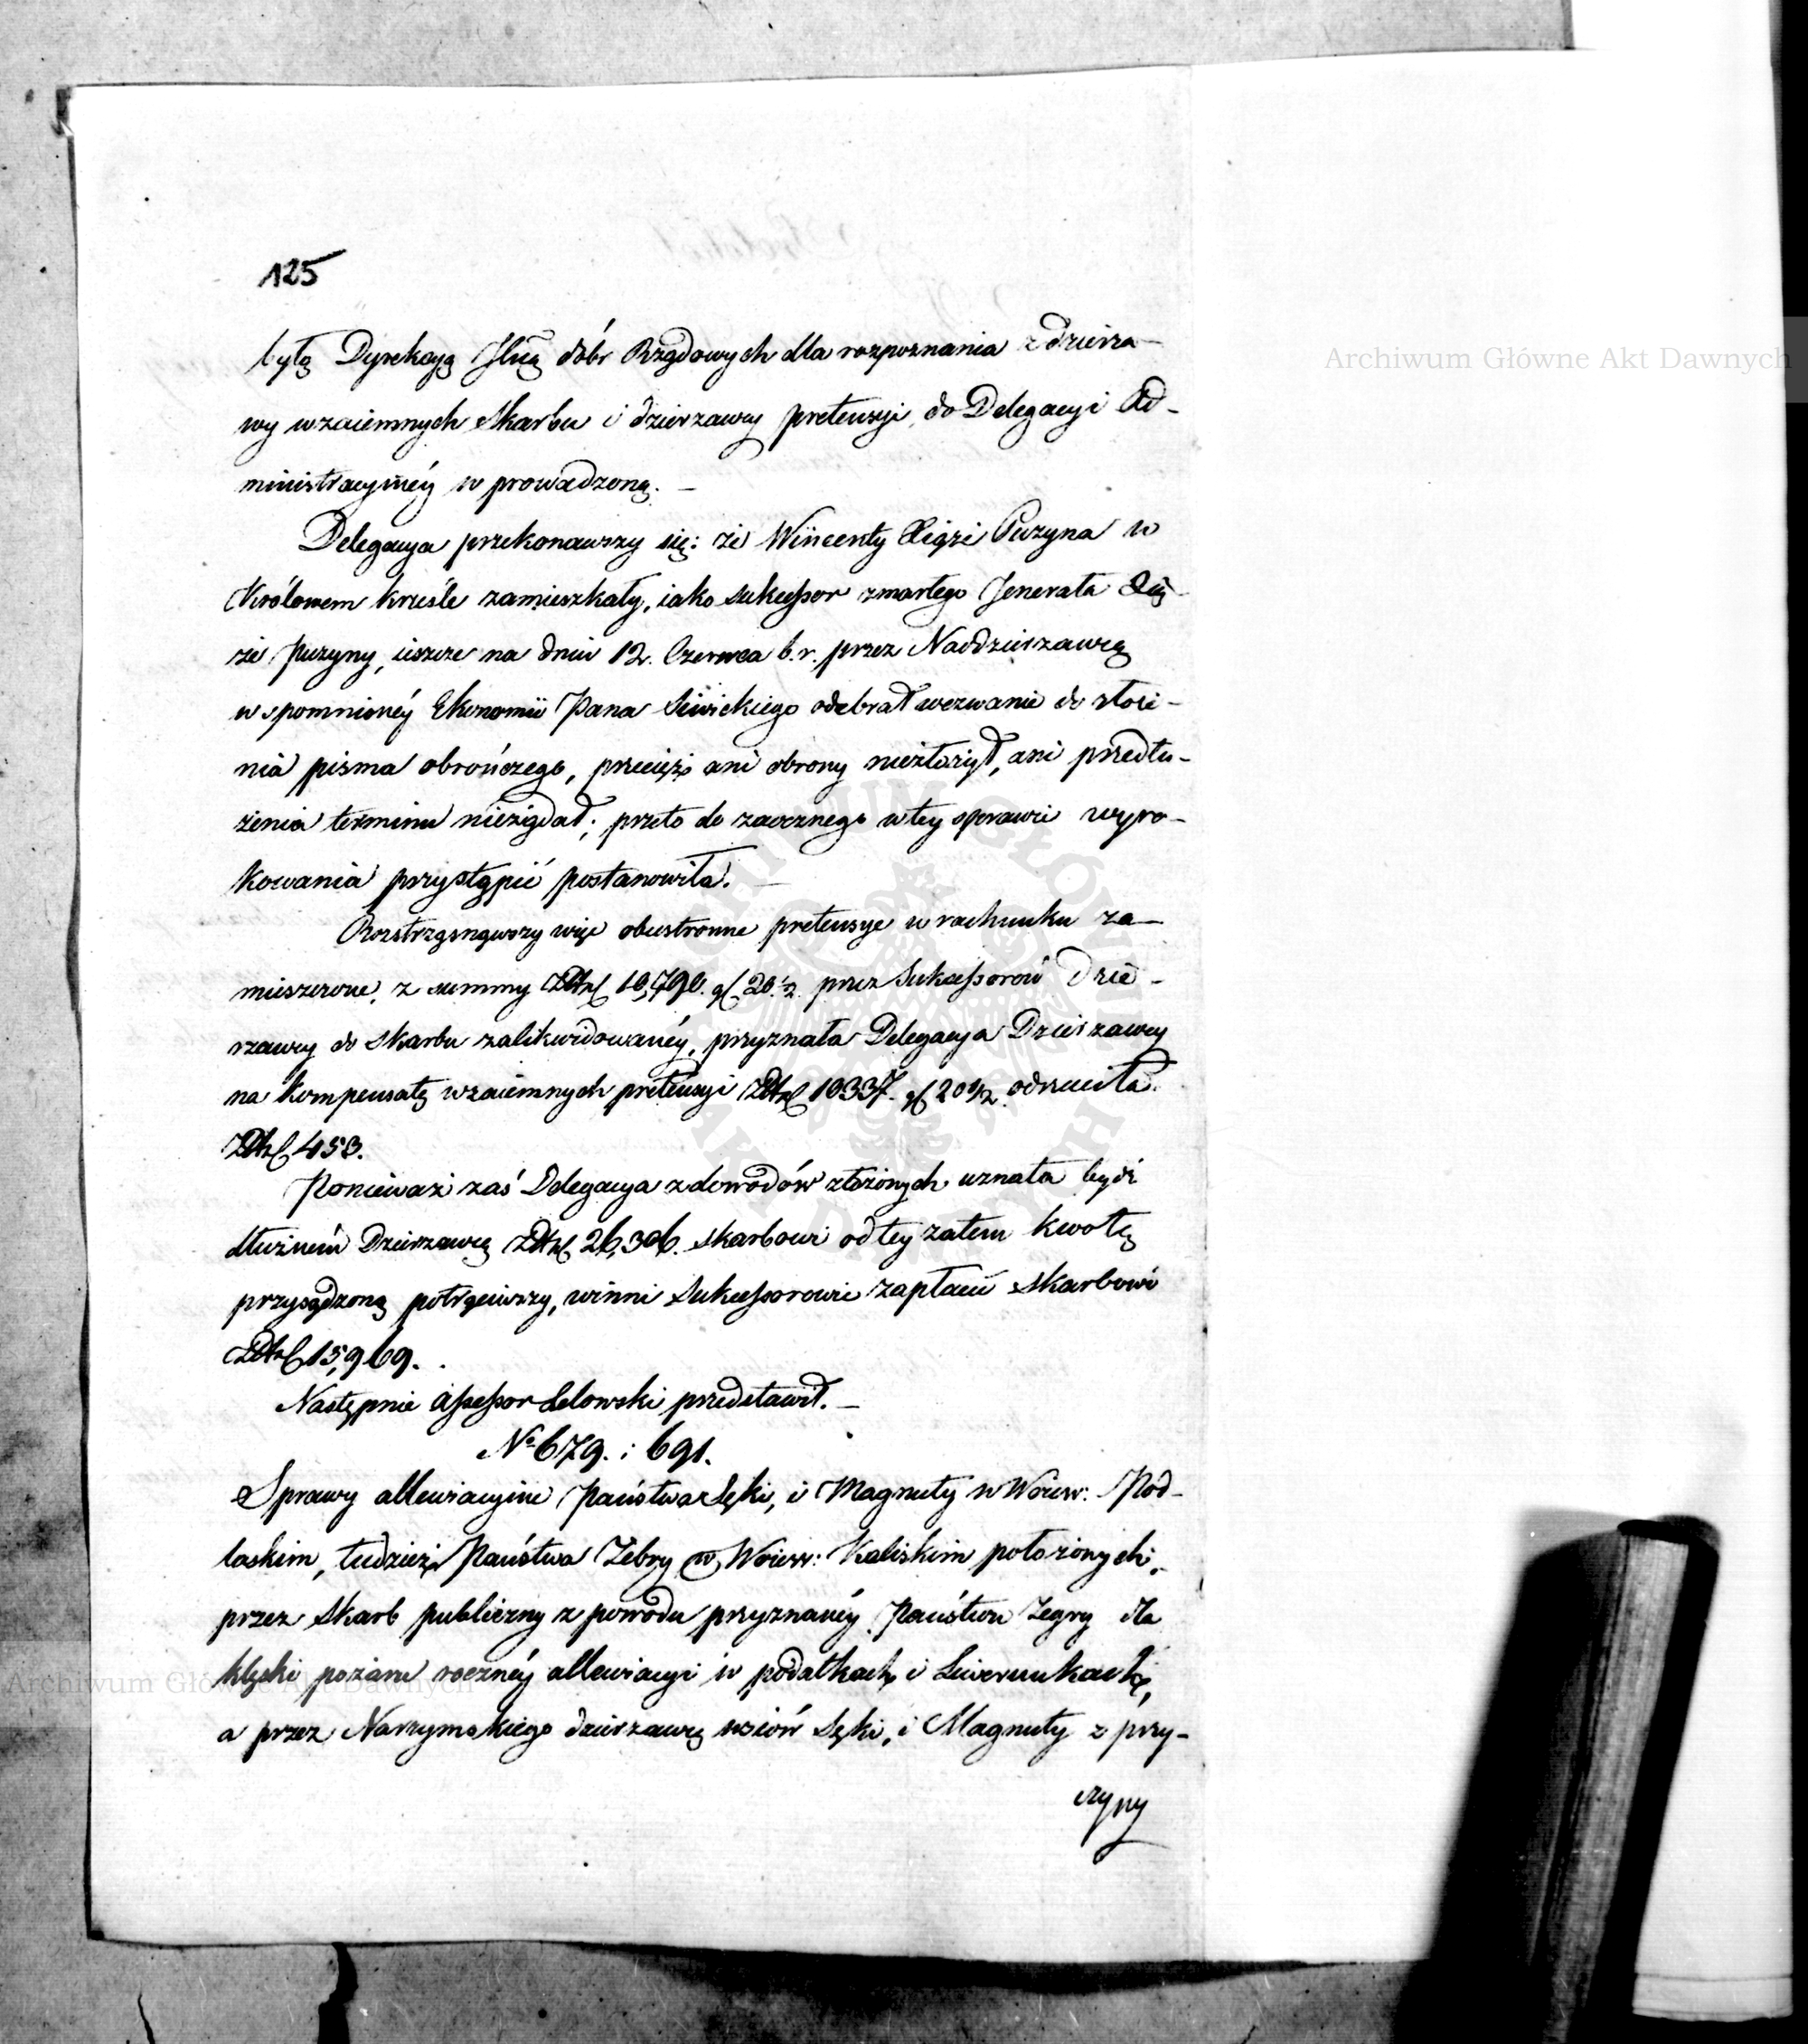 125
byłą Dyrekcyą Jlną dóbr Rządowych dla rozpoznania z dzierża-
wy wzaiemnych Skarbu i dzierzawcy pretensyi, do Delegacyi Ad-
ministracyinéy w prowadzoną. —
Delegacya przekonawszy się: że Wincenty Xiąże Puzyna w
Królowem krześle zamieszkały, iako Sukcessor zmarłego Jenerała Xią-
że Puzyny, ieszcze na dniu 12. Czerwca b. r. przez Naddzierzawcę
wspomnionéy Ekonomii Pana Siwickiego odebrał wezwanie do złoże-
nia pisma obrończego, przecięż ani obrony niezłożył, ani przedłu-
żenia terminu nieżądał; przeto do zaocznego w tey sprawie wyro-
kowania przystąpić postanowiła. —
Rozstrząsnąwszy więc obustronne pretensye w rachunku za-
mieszczone, z summy Złtpl 10,790. gl 20.½. przez Sukcessorów Dzie-
rzawcy do Skarbu zalikwidowanéy, przyznała Delegacya Dzierzawcy
na kompensatę wzaiemnych pretensyi Złtpl 10337. gl 20½. odrzuciła
Złtpl 453.
Ponieważ zaś Delegacya z dowodów złożonych uznała bydź
dłużném Dzierzawcę Złtpl 26,306. Skarbowi od tey zatem kwotę
przysądzoną potrąciwszy, winni Sukcessorowie zapłacić Skarbowi
Złtpl 15,969.
Następnie Assessor Lelowski przedstawił. —
No 679. i 691.
Sprawy allewiacyine Państwa Łęki, i Magnuty w Woiew: Pod-
laskim, tudzież Państwa Zebry w Woiew: Kaliskim położonych,
przez Skarb publiczny z powodu przyznanéy Państwu Zegry dla
klęski pożaru rocznéy allewiacyi w podatkach i Liwerunkach,
a przez Narzymskiego dzierzawcę wsiów Łęki, i Magnuty z przy-
czyny
Archiwum Główne Akt Dawnych
Archiwum Główne Akt Dawnych
ARCHIWUM GŁÓWNE AKT DAWNYCH